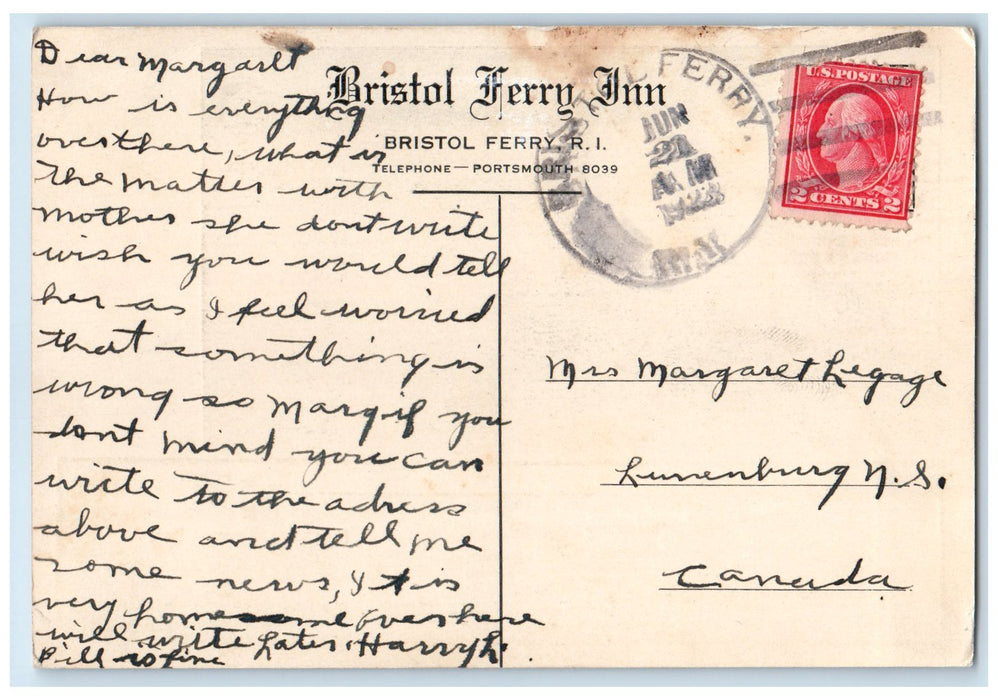 Dear Margaret
How is everything
over there, what is
the matter with
mother she dont write
wish you would tell
her as I feel worried
that something is
wrong so Marg if you
dont mind you can
write to the adress
above and tell me
some news, it is
very homesome over here
will write Later. Harry L.
Bill is fine
Bristol Ferry Inn
BRISTOL FERRY, R. I.
TELEPHONE — PORTSMOUTH 8039
BRISTOL FERRY.
JUN
21
A.M
1923
R.I.
U.S. POSTAGE
2 CENTS 2
Mrs Margaret Legage
Lunenburg N.S.
Canada